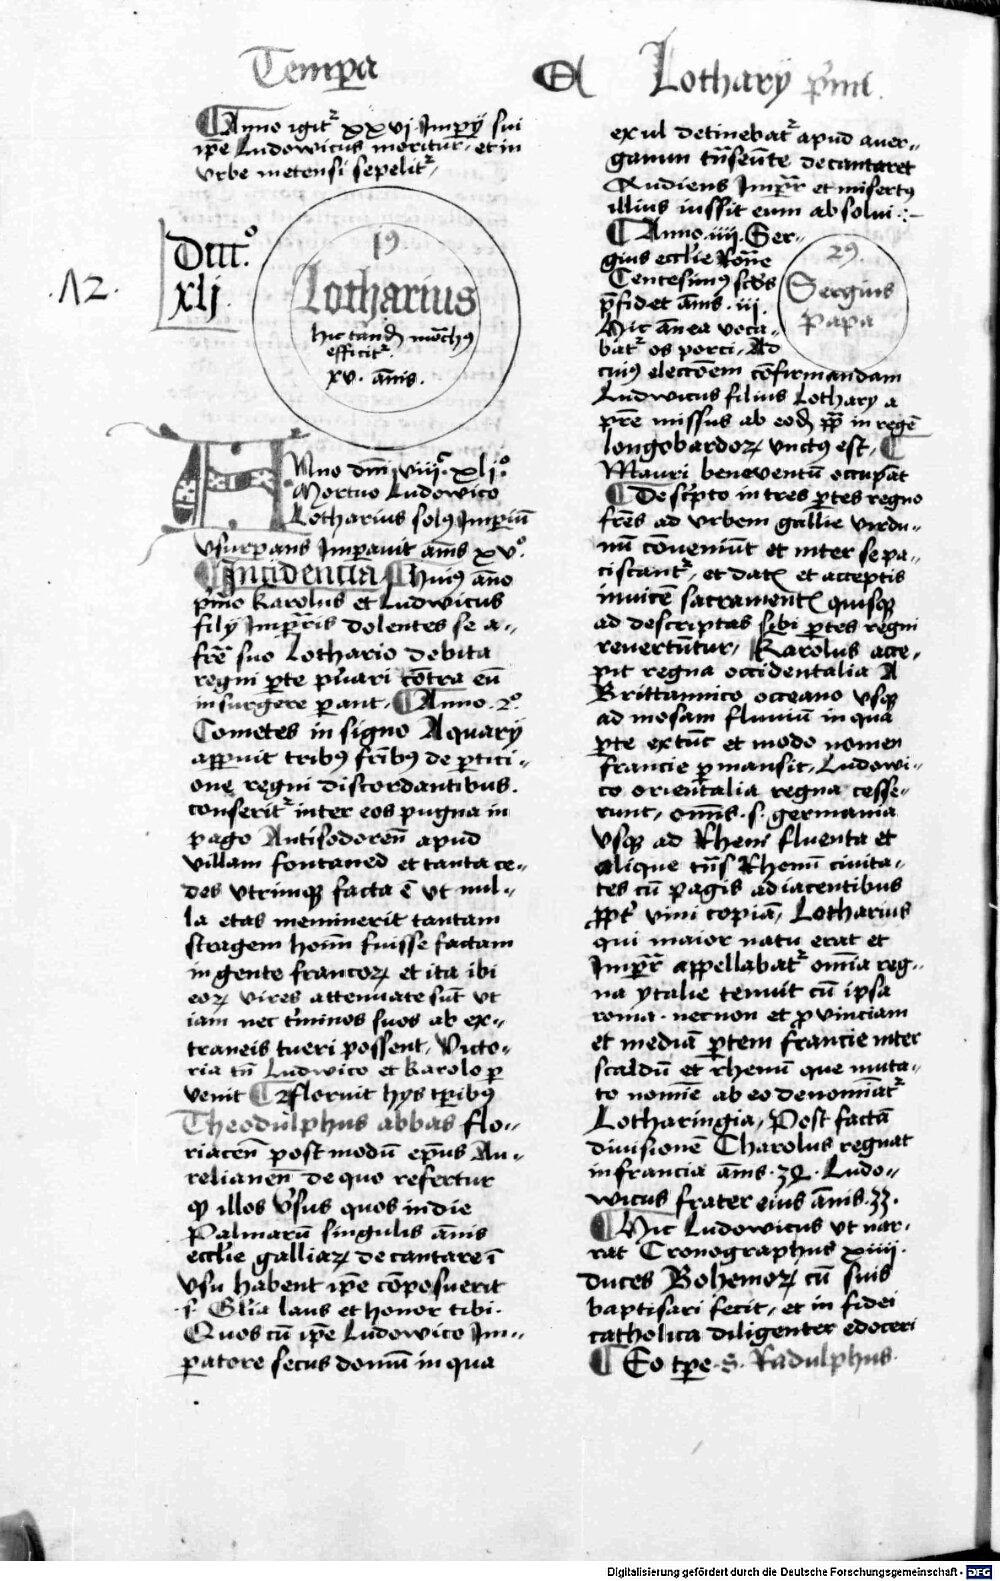 Tempa
Lothary p̄mi
Anno igit᷑ xxvj Impij sui
ip̄e Ludowicus moritur, et in
vrbe metensi sepelit᷑
Dccc°
xlj.
.12.
19
Lotharius
hic tand̄ mōchꝰ
efficit᷑
xv. annis.
Anno dm̄i viiiͨ xlj°
Mortuo Ludowico
Lotharius solꝰ Imperiū
vsurpans Imperauit annis xv°.
Incidencia Huiꝰ anno
p̄mo Karolus et Ludwicus
filij Imp̄r̄is dolentes se a
fr̄e suo Lothario debita
regni ꝑte p̄uari cōtra eū
insurgere ꝑant. Anno .2°.
Cometes in signo Aquarij
appuit tribꝰ fr̄ibꝰ de ꝑtici-
one regni discordantibus.
conserit᷑ inter eos pugna in
pago Antisodoren̄ apud
villam fontaned et tanta ce-
des vtrimqꝫ facta ē vt nul-
la etas meminerit tantam
stragem hoīm fuisse factam
in gente francoꝝ et ita ibi
eoꝝ vires attenuate sūt vt
iam nec t̄minos suos ab ex-
traneis tueri possent, Victo-
ria tn̄ Ludwico et Karolo ꝑ
venit floruit hys tꝑibꝰ
Theodulphus abbas flo-
riacen̄ postmodū ep̄us Au-
relianen̄ de quo refertur
qꝫ illos v̄sus quos in die
Palmarū singulis annis
eccl̄ie galliaꝝ decantare ī
vsu habent ip̄e cōposuerit
.s. Gl̄ia laus et honor tibi.
Quos cū ip̄e Ludowico Im-
peratore secus domū in qua
exul detinebat᷑ apud aver-
ganun tn̄seūte decantaret
Audiens Imp̄r̄ et misertꝰ
illius iussit eum absolui
Anno .iiii. Ser-
gius eccl̄ie Rōne
Centesimꝰ scd̄s
p̄sidet annis .iii.
Hic an̄ea voca-
bat᷑ os porci, Ad
cuiꝰ elecc̄oem cōfirmandam
Ludwicus filius Lothary a
pr̄e missus ab eod̄ pp̄ in regē
longobardoꝝ vnctꝰ est,
Mauri beneventū occupāt
29.
Sergius
Papa
Descripto in tres ꝑtes regno
fr̄es ad vrbem gallie virdu-
nū cōveniūt et inter se pa-
ciscant᷑, et dat̄ et acceptis
invicē sacrament̄ quisqꝫ
ad descriptas sibi ꝑtes regni
revertūtur, Karolus acce-
pit regna occidentalia A
Brittannico occeano vsqꝫ
ad mosam fluviū in qua
ꝑte extūc et modo nomen
francie ꝑmansit, Ludowi-
co orientalia regna cesse-
runt, omīs .s. germania
vsqꝫ ad Rheni fluenta et
alique tn̄s Rhenū civita-
tes cū pagis adiacentibus
ppt̄ vini copiā, Lotharius
qui maior natu erat et
Imp̄r̄ appellabat᷑ om̄ia reg-
na ytalie tenuit cū ipsa
roma. necnon et ꝓvinciam
et mediā ꝑtem francie inter
scaldū et rhenū que muta-
to nomīe ab eo denomīat᷑
Lotharingia, Post factā
divisionē Charolus regnat
in francia annis .3Λ. Ludo-
wicus frater eius annis .33.
Hic Ludowicus vt nar-
rat Cronographus xiiij.
duces Bohemoꝝ cū suis
baptisari fecit, et in fidei
catholica diligenter edoceri
Eo tꝑe .S. Radulphus.
Digitalisierung gefördert durch die Deutsche Forschungsgemeinschaft - DFG